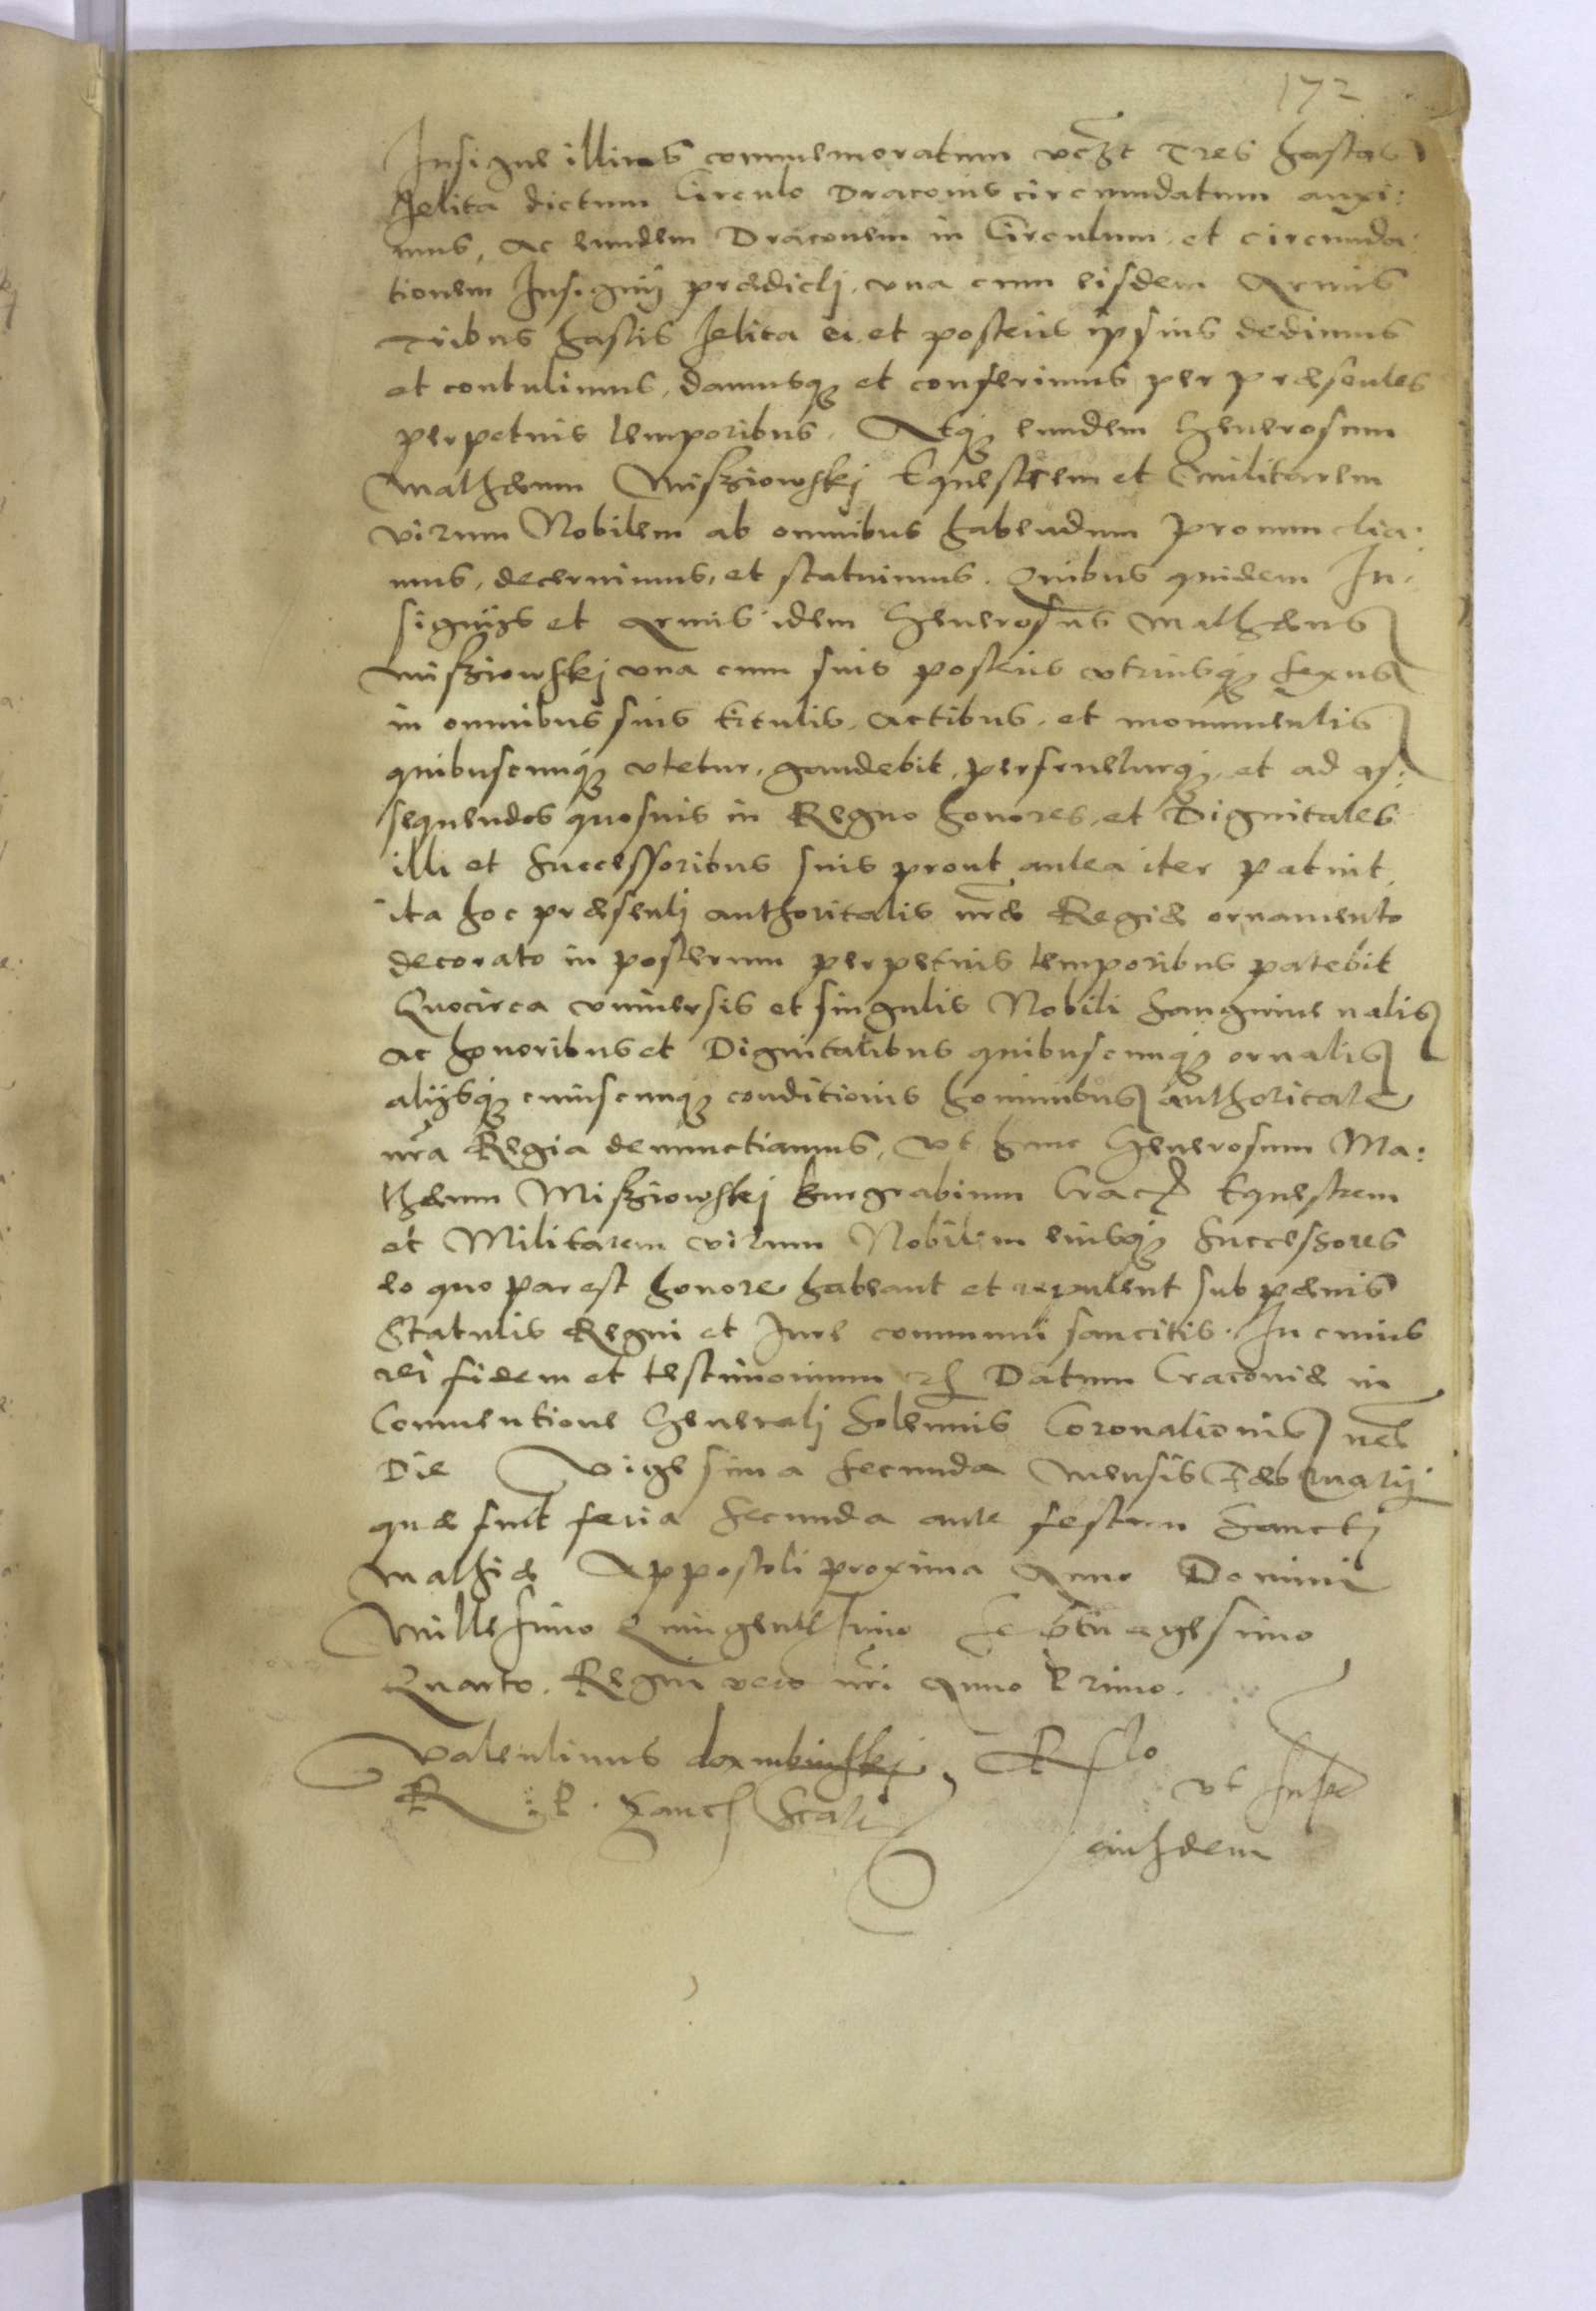 172
Insigne illius commemoratum vczt Tres hastas
Jelita dictum Circulo Draconis circumdatum auxi:
mus, ac eundem Draconem in Circulum et circumda:
tionem Insignij prædicti, vna cum eisdem Armis
Tribus hastis Jelita ei et posteris ipsius dedimus
et contulimus, damusq; et conferimus per præsentes
perpetuis temporibus. Atq; eundem Generosum
Mathæum Misziowskj Equestrem et Militarem
virum Nobilem ab omnibus habendum pronunctia:
mus, decernimus, et statuimus. Quibus quidem In:
signijs et Armis idem Generosus Mathæus
Misziowskj vna cum suis posteris vtriusq; sexus
in omnibus suis titulis, actibus, et monumentis
quibuscunq; vtetur, gaudebit, perfrueturq; et ad as:
sequendos quosuis in Regno honores, et Dignitates
illi et Successoribus suis prout antea iter patuit,
ita hoc præsentj authoritatis nræ Regiæ ornamento
decorato in posterum perpetuis temporibus patebit
Quocirca vniuersis et singulis Nobili Sanguine natis
ac honoribus et Dignitatibus quibuscunq; ornatis
alijsq; cuiuscunq; conditionis hominibus authoritate
nra Regia denunctiamus, vt hunc Generosum Ma:
thæum Misziowskj Burgrabium Crac Equestrem
et Militarem virum Nobilem eiusq; Successores
eo quo par est honore habeant et reputent sub pænis
Statutis Regni et Jure communi sancitis. In cuius
rei fidem et testimonium Datum Cracoviæ in
Conuentione Generalj Solennis Coronationis nræ
Die Vigesima Secunda mensis Februarij
quæ fuit feria Secunda ante festum Sanctj
Mathiæ Appostoli proxima Anno Domini
Millesimo Quingentesimo Septuagesimo
Quarto. Regni vero nri Anno Primo.
Valentinus dambinskj
R P. Canc
Rlo vt Supra
eiusdem